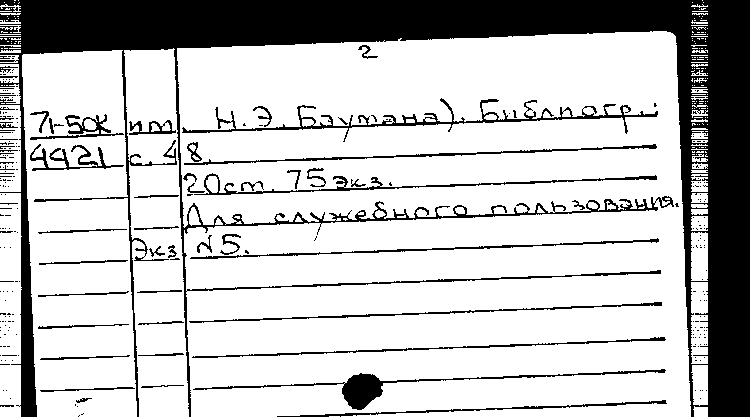 2
71-50К им. Н.Э. Баумана). Библиогр.:
4421 с. 48.
20см. 75 экз.
Для служебного пользования.
Экз. №5.